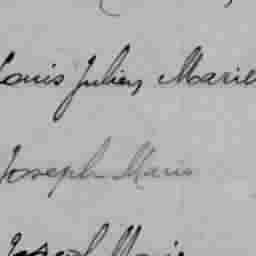 Louis Julien Marie
Joseph Marie
Joseph Marie